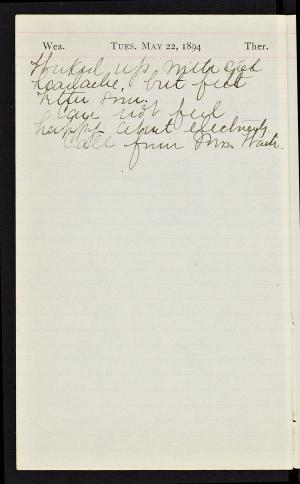 Wea. TUES. MAY 22, 1894 Ther.
up with
headache, but felt
better
Can not feel
happy about electricity
Call from Mrs.